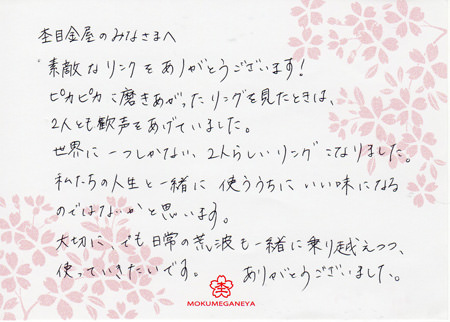 杢目金屋のみなさまへ
素敵なリングをありがとうございます!
ピカピカに磨きあがったリングを見たときは、
2人とも歓声をあげていました。
世界に一つしかない、2人らしいリングになりました。
私たちの人生と一緒に使ううちにいい味になる
のではないかと思います。
大切に、でも日常の荒波も一緒に乗り越えつつ、
使っていきたいです。 ありがとうございました。
MOKUMEGANEYA